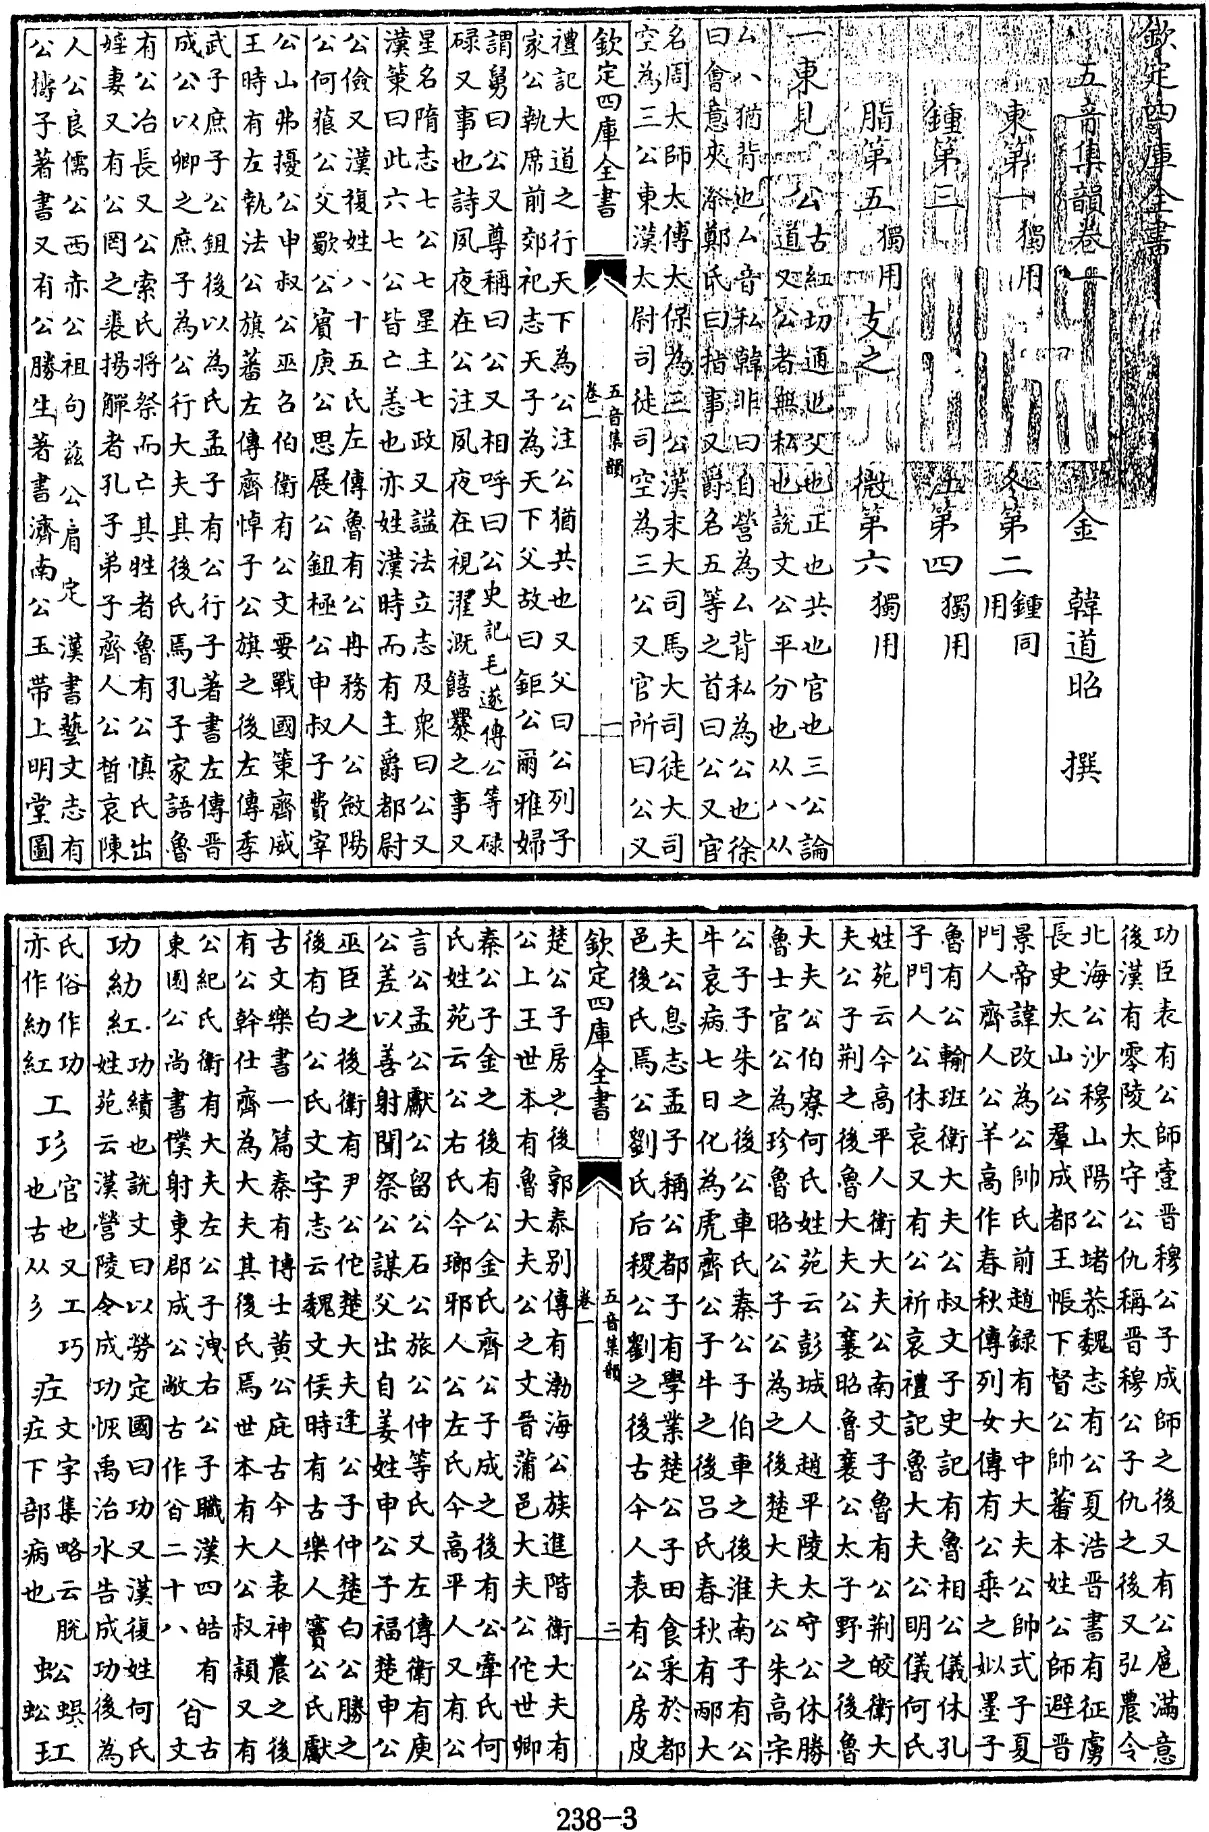 欽定四庫全書
五音集韻卷一 金 韓道昭 撰
東第一獨用 冬第二鍾同用
鍾第三 江第四獨用
脂第五獨用 支之 微第六獨用
一東見一公古紅切通也父也正也共也官也三公論
道又公者無私也說文公平分也从八从
厶八猶背也厶音私韓非曰自營為厶背私為公也徐
曰會意夾漈鄭氏曰指事又爵名五等之首曰公又官
名周太師太傅太保為三公漢末大司馬大司徒大司
空為三公東漢太尉司徒司空為三公又官所曰公又
欽定四庫全書 五音集韻 卷一 一
禮記大道之行天下為公注公猶共也又父曰公列子
家公執席前郊祀志天子為天下父故曰鉅公爾雅婦
謂舅曰公又尊稱曰公又相呼曰公史記毛遂傳公等碌
碌又事也詩夙夜在公注夙夜在視濯溉饎爨之事又
星名隋志七公七星主七政又謚法立志及衆曰公又
漢策曰此六七公皆亡恙也亦姓漢時而有主爵都尉
公儉又漢複姓八十五氏左傳魯有公冉務人公斂陽
公何藐公父歜公賓庚公思展公鉏極公申叔子費宰
公山弗擾公申叔公巫召伯衛有公文要戰國策齊威
王時有左執法公旗蕃左傳齊悼子公旗之後左傳季
武子庶子公鉏後以為氏孟子有公行子著書左傳晉
成公以卿之庶子為公行大夫其後氏焉孔子家語魯
有公冶長又公索氏將祭而亡其牲者魯有公慎氏出
婬妻又有公罔之裘揚觶者孔子弟子齊人公晳哀陳
人公良儒公西赤公祖句兹公肩定漢書藝文志有
公擣子著書又有公勝生著書濟南公玉帶上明堂圖
功臣表有公師壹晉穆公子成師之後又有公扈滿意
後漢有零陵太守公仇稱晉穆公子仇之後又弘農令
北海公沙穆山陽公堵恭魏志有公夏浩晉書有征虜
長史太山公羣成都王帳下督公帥蕃本姓公師避晉
景帝諱改為公帥氏前趙録有大中大夫公帥式子夏
門人齊人公羊高作春秋傳列女傳有公乘之姒墨子
魯有公輸班衛大夫公叔文子史記有魯相公儀休孔
子門人公休哀又有公祈哀禮記魯大夫公明儀何氏
姓苑云今高平人衛大夫公南文子魯有公荆皎衛大
夫公子荆之後魯大夫公襄昭魯襄公太子野之後魯
大夫公伯寮何氏姓苑云彭城人趙平陵太守公休勝
魯士官公為珍魯昭公子公為之後楚大夫公朱高宗
公子子朱之後公車氏秦公子伯車之後淮南子有公
牛哀病七日化為虎齊公子牛之後吕氏春秋有邴大
夫公息志孟子稱公都子有學業楚公子田食采於都
邑後氏焉公劉氏后稷公劉之後古今人表有公房皮
欽定四庫全書 五音集韻 卷一 二
楚公子房之後郭泰别傳有渤海公族進階衛大夫有
公上王世本有魯大夫公之文晉蒲邑大夫公佗世卿
秦公子金之後有公金氏齊公子成之後有公牽氏何
氏姓苑云公右氏今瑯邪人公左氏今高平人又有公
言公孟公獻公留公石公旅公仲等氏又左傳衛有庾
公差以善射聞祭公謀父出自姜姓申公子福楚申公
巫臣之後衛有尹公佗楚大夫逢公子仲楚白公勝之
後有白公氏文字志云魏文侯時有古樂人竇公氏獻
古文樂書一篇秦有博士黄公庇古今人表神農之後
有公幹仕齊為大夫其後氏焉世本有大公叔潁又有
公紀氏衛有大夫左公子洩右公子職漢四皓有
東園公尚書僕射東郡成公敞古作㕣二十八 㕣古文
功㓛紅功績也說文曰以勞定國曰功又漢複姓何氏
姓苑云漢營陵令成功恢禹治水告成功後為
氏俗作功
亦作㓛紅 工㣉官也又工巧
也古从彡 疘文字集略云脱
疘下部病也 蚣蜈蚣
玒